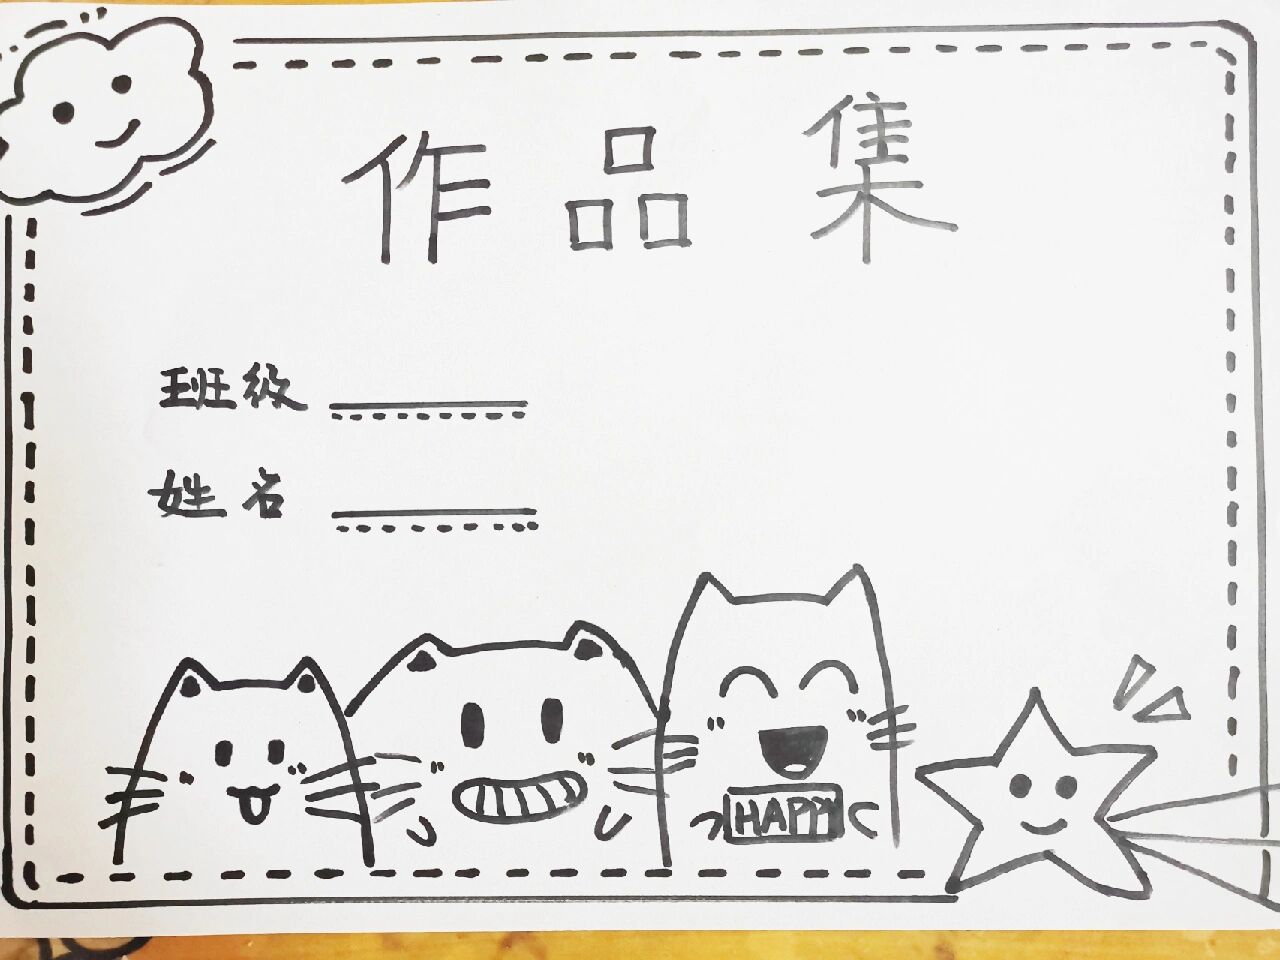 作品集
班级
姓名
HAPPY